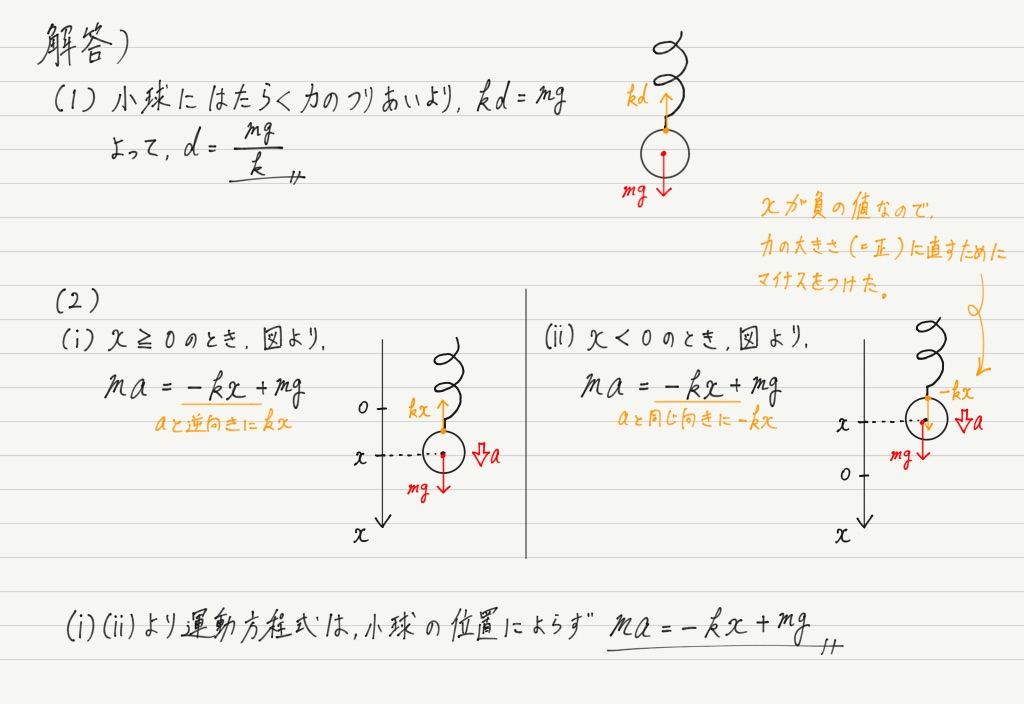 解答)
(1) 小球にはたらく力のつりあいより, kd = mg
よって, d = mg/k
kd
mg
xが負の値なので,
力の大きさ(=正)に直すために
マイナスをつけた。
(2)
(i) x ≧ 0 のとき, 図より,
ma = -kx + mg
aと逆向きにkx
0
x
x
kx
a
mg
(ii) x < 0 のとき, 図より,
ma = -kx + mg
aと同じ向きに-kx
x
0
x
-kx
a
mg
(i)(ii)より運動方程式は, 小球の位置によらず ma = -kx + mg